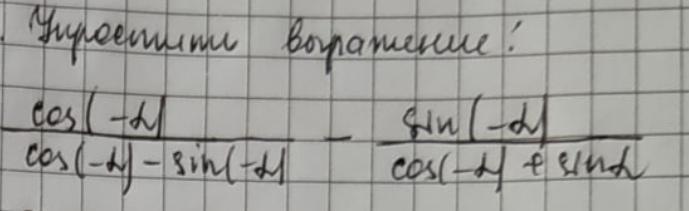 Упростити выражение:
cos(-α) / cos(-α) - sin(-α) - sin(-α) / cos(-α) + sinα